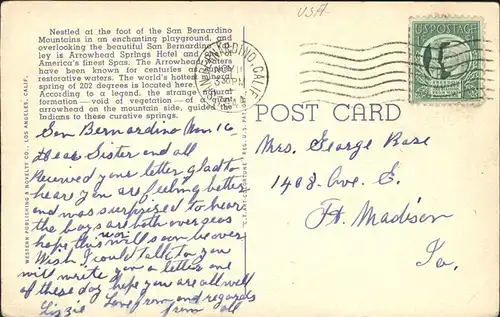 USA
Nestled at the foot of the San Bernardino
Mountains in an enchanting playground, and
overlooking the beautiful San Bernardino
ley is Arrowhead Springs Hotel and
America's finest Spas. The Arrowhead waters
have been known for centuries as
restorative waters. The world's hottest mineral
spring of 202 degrees is located here.
According to a legend, the strange natural
formation—void of vegetation—of a giant
arrowhead on the mountain side, guided the
Indians to these curative springs.
SAN BERNARDINO, CALIF.
U.S. POSTAGE
POST CARD
WESTERN PUBLISHING & NOVELTY CO., LOS ANGELES, CALIF.
San Bernardino Nov 16
Dear Sister and all
Received your letter glad to
hear you are feeling better
and was surprized to hear
the boys are both over seas
hope this war will soon be over
Wish I could talk to you
will write you a letter one
of these day hope you are all well
Lizzie Love from and regards
from all
Mrs. George Rase
1408 Ave. E.
Ft. Madison
Ia.